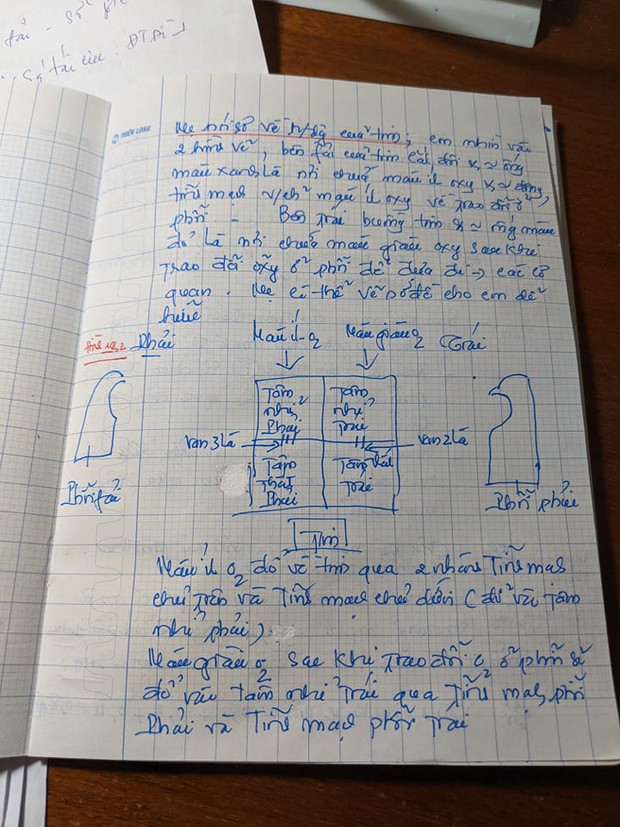 tải - sơ
Sơ tái cứu: ĐTĐ
THIÊN LONG
Mẹ nói sơ về h/động của tim; em nhìn vào
2 hình vẽ, bên fải của tim
màu xanh là nơi chứa máu ít oxy
tĩnh mạch v/ch máu ít oxy về trao đổi ở
phổi - Bên trái buồng tim ống màu
đỏ là nơi chứa máu giàu oxy sau khi
trao đổi ôxy ở phổi để đưa đi → các cơ
quan. Mẹ có thể vẽ sơ đồ cho em dễ
hiểu
Máu ít O2 Máu giàu O2
Phải Trái
Tâm nhĩ Phải
Tâm nhĩ trái
van 3 lá van 2 lá
Tâm thất Phải
Tâm thất Trái
Phổi fải Phổi phải
Tim
Máu ít O2 đổ về tim qua 2 nhánh Tĩnh mạch
chủ trên và Tĩnh mạch chủ dưới (đổ vào tâm
nhĩ phải).
Máu giàu O2 sau khi trao đổi ở phổi sẽ
đổ vào tâm nhĩ trái qua Tĩnh mạch phổi
Phải và Tĩnh mạch phổi Trái